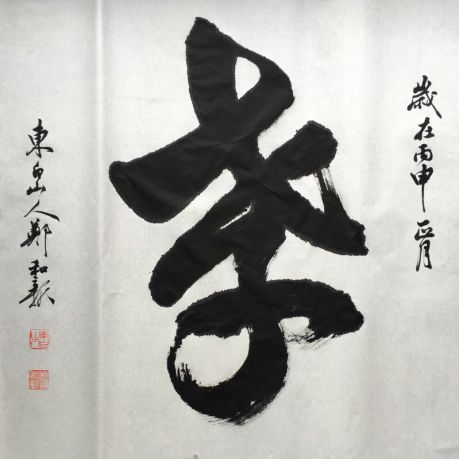 歲在丙申正月
孝
東白山人鄭和